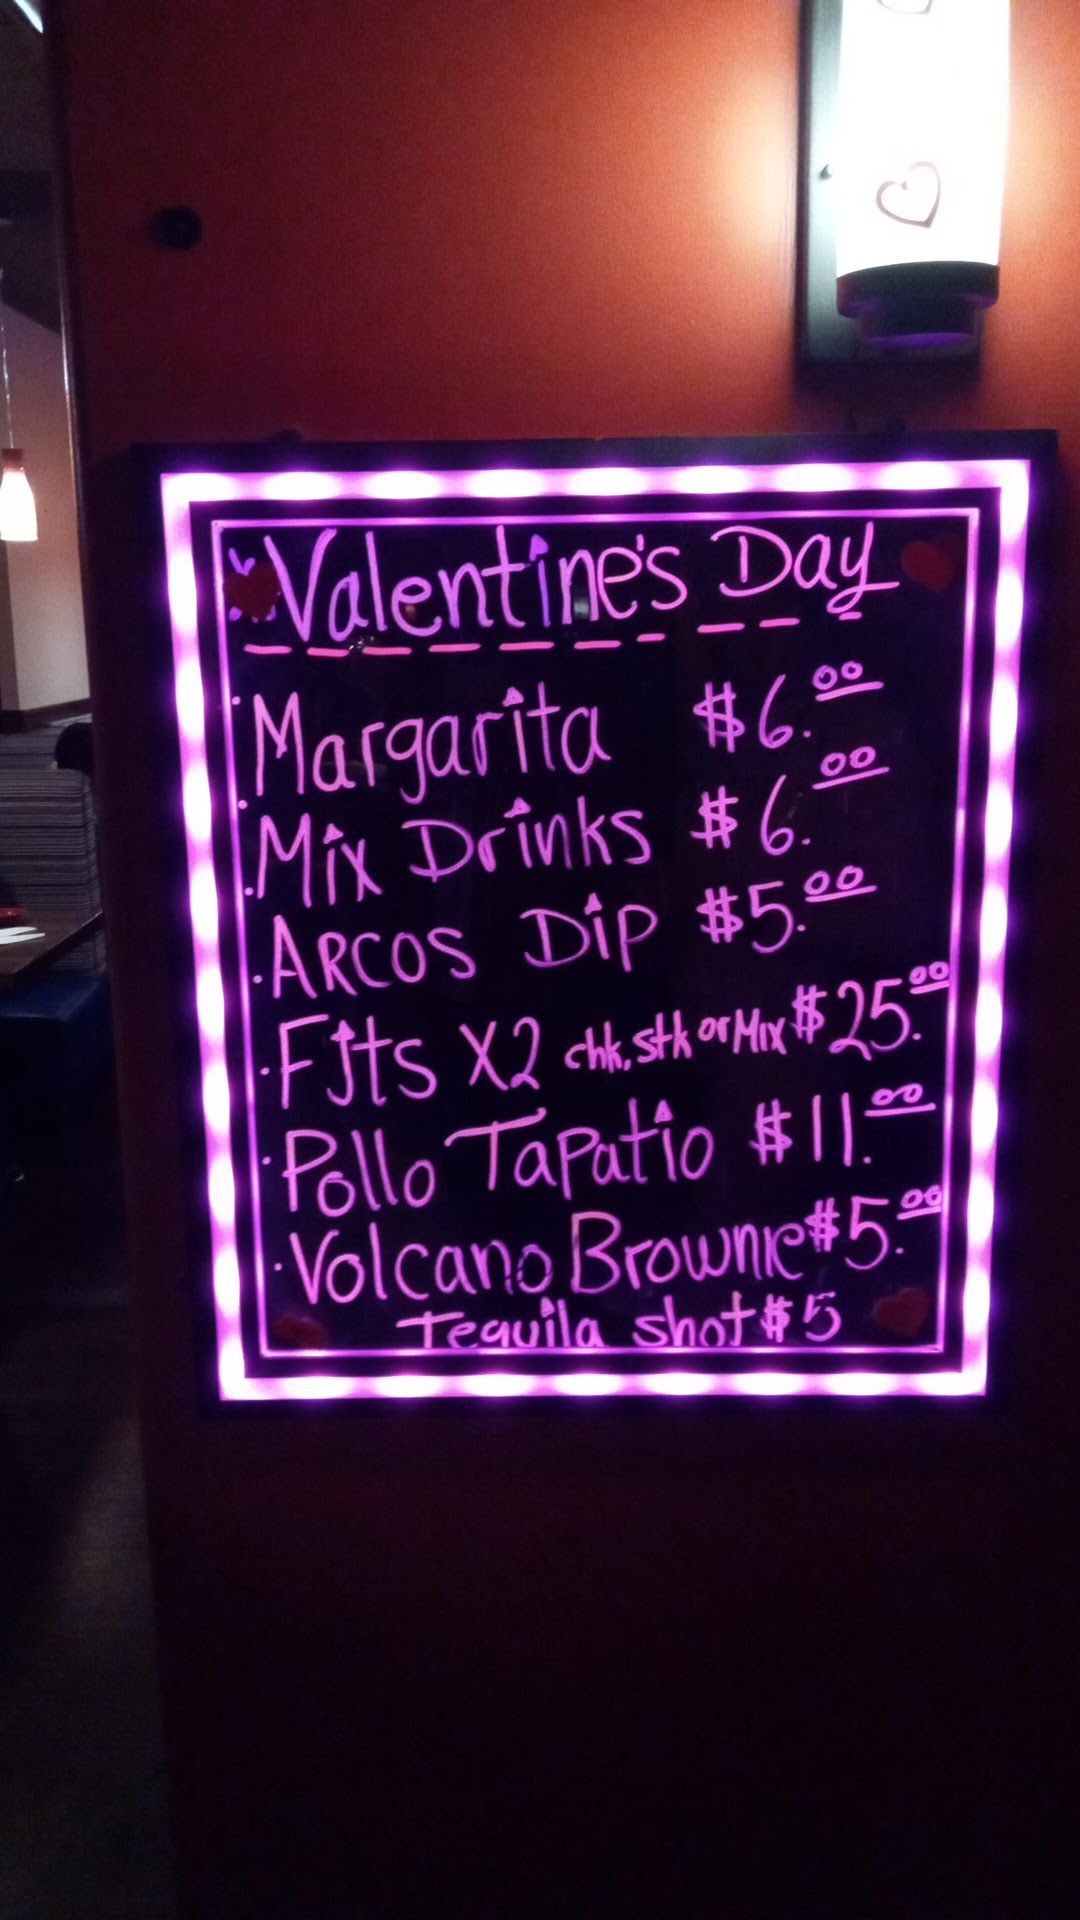 Valentine's Day
Margarita $6.00
Mix Drinks $6.00
ARCOS Dip $5.00
Fjts X2 chk, stk or Mix $25.00
Pollo Tapatio $11.00
Volcano Brownie $5.00
Tequila shot $5